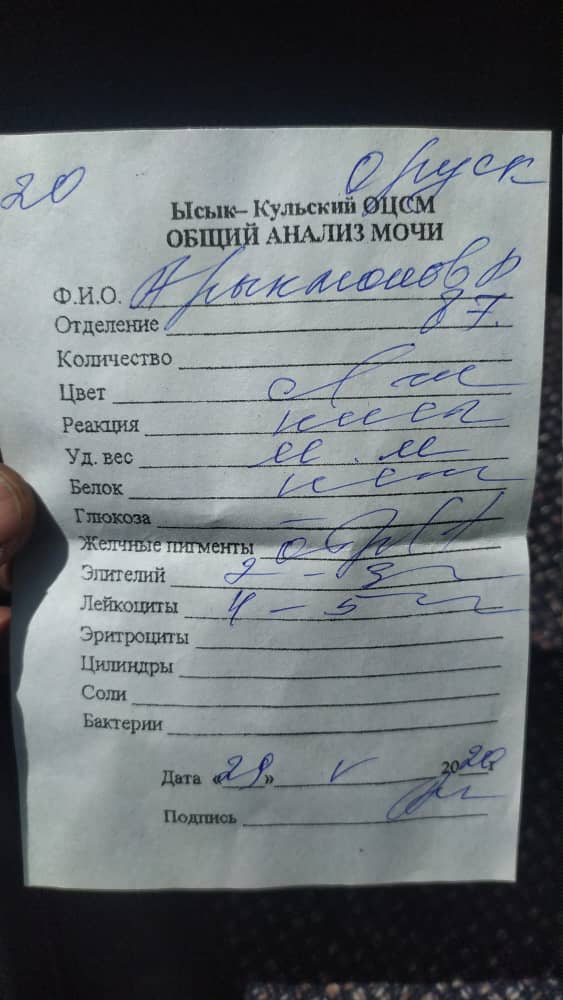 20
Ысык– Кульский ОЦСМ
ОБЩИЙ АНАЛИЗ МОЧИ
Ф.И.О.
Отделение 87.
Количество
Цвет
Реакция
Уд. вес м.м
Белок
Глюкоза –
Желчные пигменты
Эпителий 2 – 3
Лейкоциты 4 – 5
Эритроциты
Цилиндры
Соли
Бактерии
Дата «29» V 2020г
Подпись